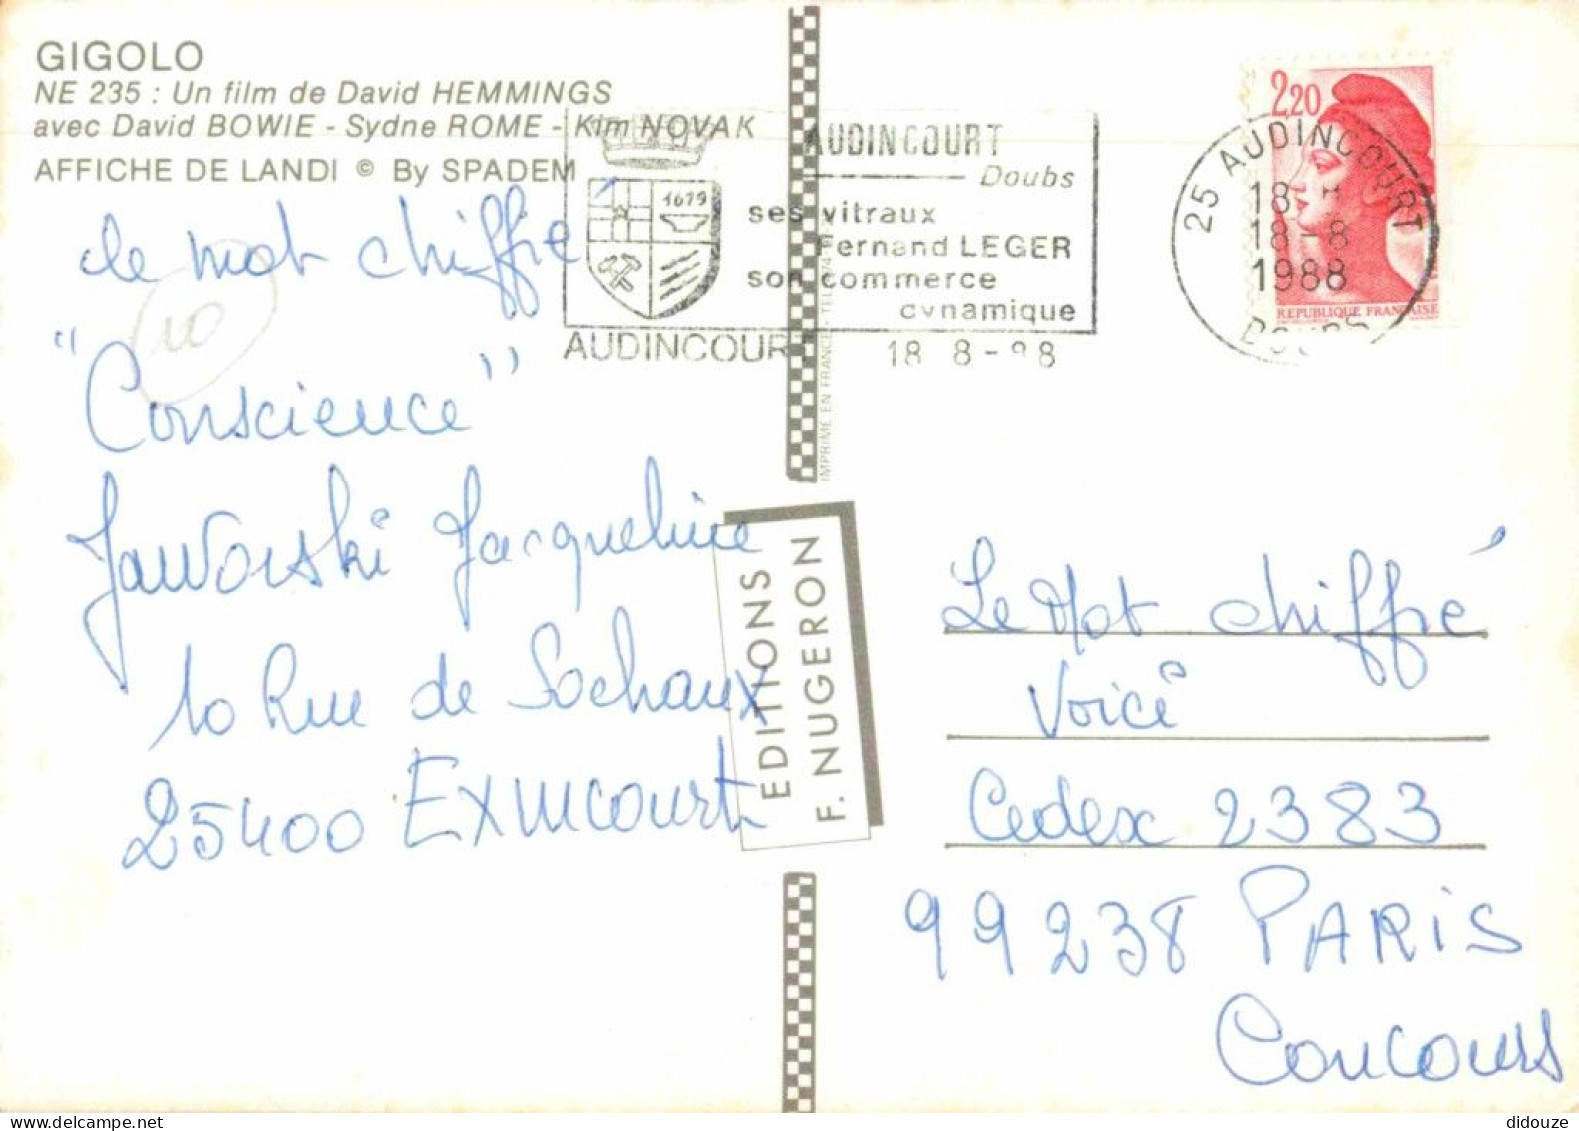 GIGOLO
NE 235 : Un film de David HEMMINGS
avec David BOWIE - Sydne ROME - Kim NOVAK
AFFICHE DE LANDI © By SPADEM
le mot chiffré
10
"Conscience"
Jaworski Jacqueline
10 Rue de Sochaux
25400 EXINCOURT
1679
AUDINCOURT
Doubs
ses vitraux
Fernand LEGER
son commerce
dynamique
AUDINCOUR
18 8-88
2,20
REPUBLIQUE FRANÇAISE
25 AUDINCOURT
18
18-8
1988
DOUBS
IMPRIME EN FRANCE - TEL
EDITIONS
F. NUGERON
Le Mot chiffré
Voici
Cedex 2383
99238 PARIS
Concours
didouze